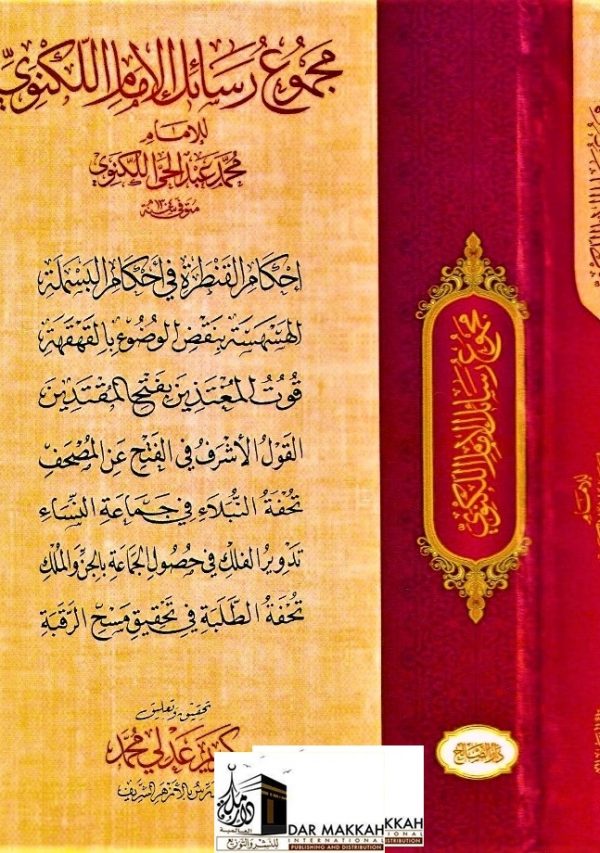 مجموع رسائل الإمام اللكنوي
للإمام
محمد عبد الحي اللكنوي
متوفى سنة ١٣٠٤ هـ
إحكام القنطرة في أحكام البسملة
الهسهسة بنقض الوضوء بالقهقهة
قوت المغتذين بفتح المقتدين
القول الأشرف في الفتح عن المصحف
تحفة النبلاء في جماعة النساء
تدوير الفلك في حصول الجماعة بالجن والملك
تحفة الطلبة في تحقيق مسح الرقبة
تحقيق وتعليق
عدلي محمد
الأزهر الشريف
مجموع رسائل الإمام اللكنوي
دار الصالح
للإمام
دار مكة
العالمية
للنشر والتوزيع
DAR MAKKAH
INTERNATIONAL
PUBLISHING AND DISTRIBUTION
KKAH
TIONAL
TRIBUTION